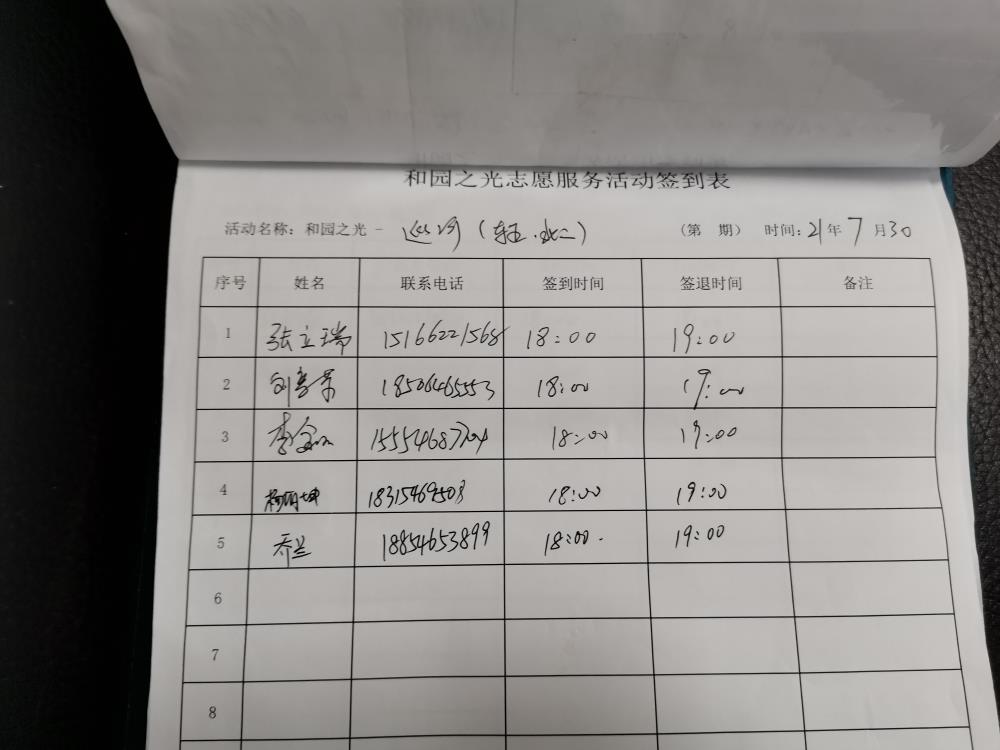 和园之光志愿服务活动签到表
活动名称：和园之光 - 巡河（ （第 期） 时间：21年7月30
序号 姓名 联系电话 签到时间 签退时间 备注
1 张立瑞 15166221568 18:00 19:00
2 18506465553 18:00 19:00
3 李 18:00 19:00
4 18315469508 18:00 19:00
5 乔兰 18854653899 18:00. 19:00
6
7
8